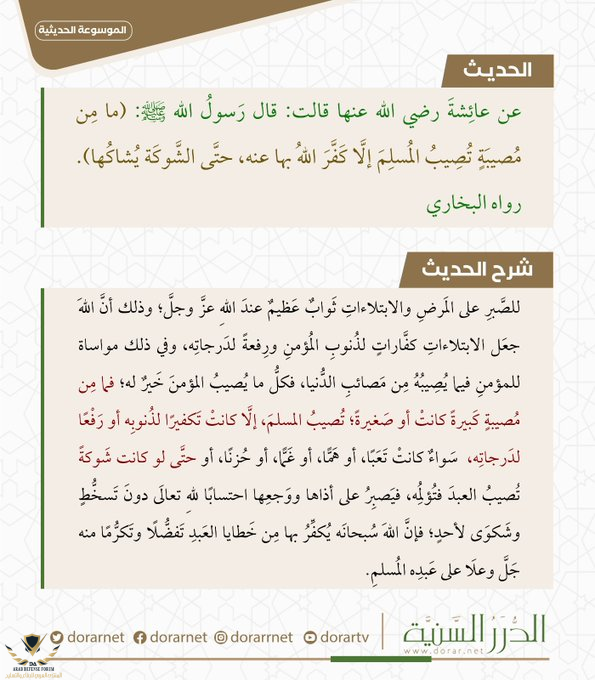 الموسوعة الحديثية
الحديث
عن عائِشةَ رضي الله عنها قالت: قال رَسولُ الله ﷺ: (ما مِن
مُصيبَةٍ تُصِيبُ المُسلِمَ إلَّا كَفَّرَ اللهُ بها عنه، حتَّى الشَّوكَة يُشاكُها).
رواه البخاري
شرح الحديث
للصَّبرِ على المَرضِ والابتلاءاتِ ثَوابٌ عَظيمٌ عندَ اللهِ عزَّ وجلَّ؛ وذلك أنَّ اللهَ
جعَل الابتلاءاتِ كفَّاراتٍ لذُنوبِ المُؤمنِ ورِفعةً لدَرجاتِه، وفي ذلك مواساة
للمؤمنِ فيما يُصِيبُهُ مِن مَصائبِ الدُّنيا، فكلُّ ما يُصيبُ المؤمنَ خَيرٌ له؛ فما مِن
مُصيبةٍ كَبيرةً كانتْ أو صَغيرةً؛ تُصيبُ المسلمَ، إلَّا كانتْ تَكفيرًا لذُنوبِه أو رَفْعًا
لدَرجاتِه، سَواءٌ كانتْ تَعَبًا، أو هَمًّا، أو غَمًّا، أو حُزنًا، أو حتَّى لو كانت شَوكةً
تُصيبُ العبدَ فتُؤلِمُه، فيَصبِرُ على أذاها ووَجعِها احتسابًا للهِ تعالَى دونَ تَسخُّطٍ
وشَكوَى لأحدٍ؛ فإنَّ اللهَ سُبحانَه يُكفِّرُ بها مِن خَطايا العَبدِ تَفضُّلًا وتَكرُّمًا منه
جَلَّ وعلَا على عَبدِه المُسلمِ.
dorarnet dorarnet dorarrnet dorartv
الدُّرَرُ السَّنِيَّة
www.dorar.net
ARAB DEFENSE FORUM